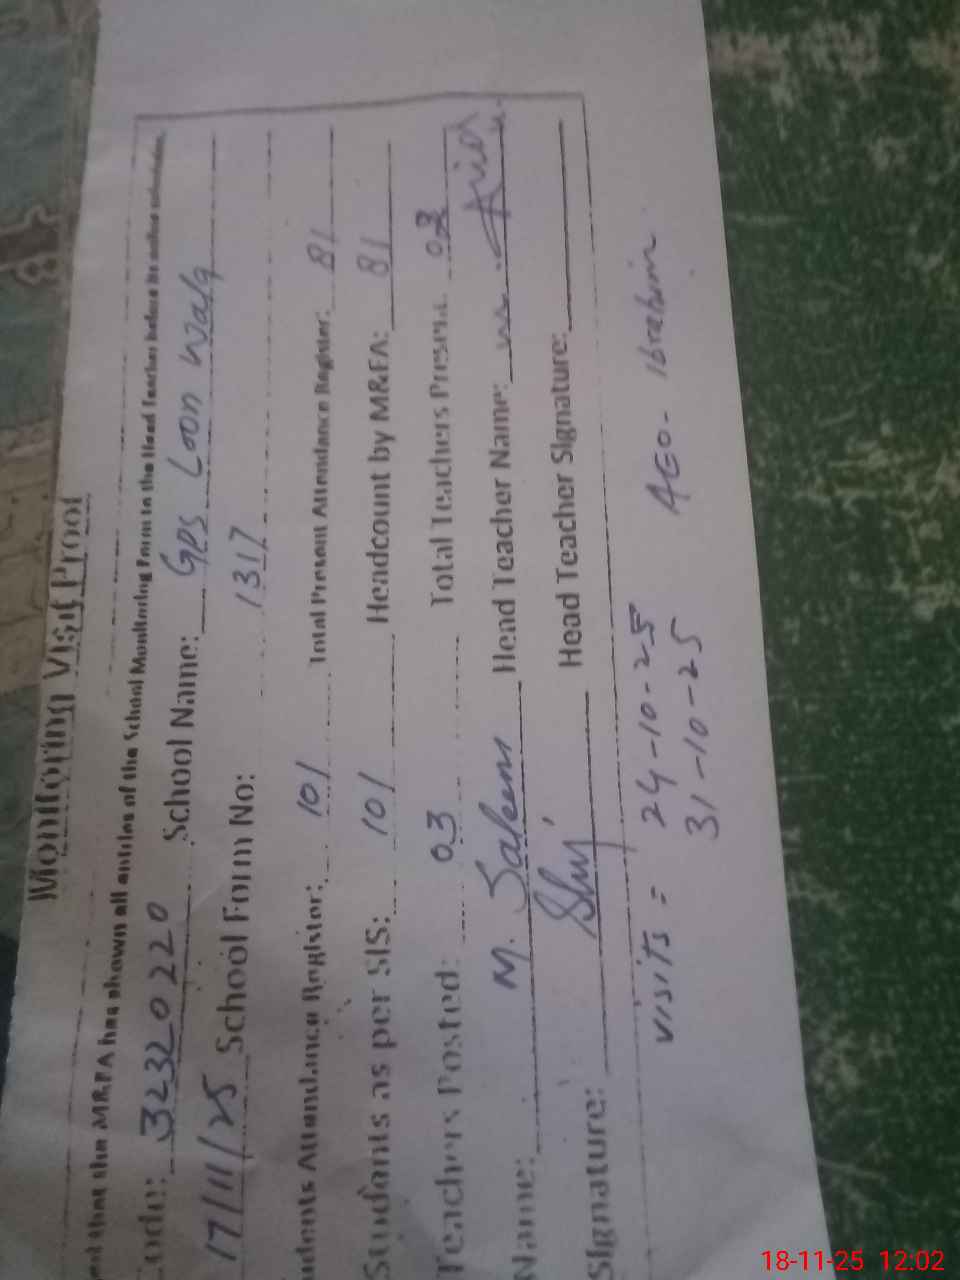 Monitoring Visit Proof
that the M&EA has shown all entries of the School Monitoring Form to the Head Teacher before
Code: 32320220 School Name: GPS Loon Wala
17/11/25 School Form No: 1317
udents Attendance Register: 101 Total Present Attendance Register: 81
Students as per SIS: 101 Headcount by M&EA: 81
Teachers Posted: 03 Total Teachers Present: 03
Name: M. Saleem Head Teacher Name:
Signature: Head Teacher Signature:
visits = 24-10-25 AEO- Ibrahim
31-10-25
18-11-25 12:02